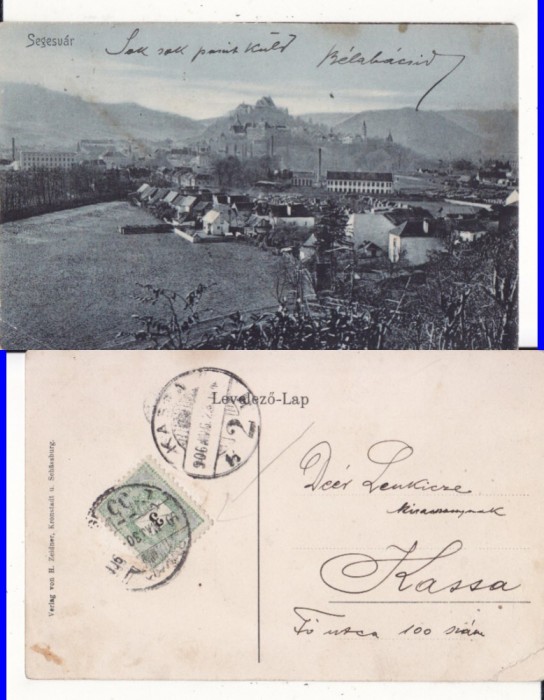 Segesvár
Sok sok puszit küld
Bélabácsid
Levelező-Lap
KASSA
906
Deér Lenkicze
Kassa
Fő utca 100 szám
Verlag von H. Zeidner, Kronstadt u. Schässburg.